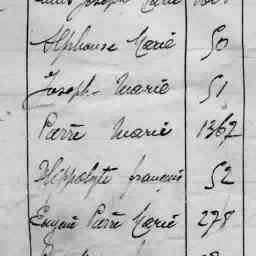 Joseph Marie
Alphonse Marie 50
Joseph Marie 51
Pierre Marie 1367
Hippolyte françois 52
Eugène Pierre Marie 278